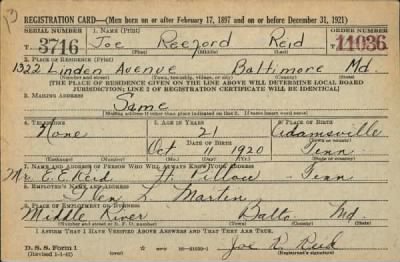 REGISTRATION CARD—(Men born on or after February 17, 1897 and on or before December 31, 1921)
SERIAL NUMBER 1. NAME (Print) ORDER NUMBER
T. 3716 Joe Reeford Reid T. 11036
(First) (Middle) (Last)
2. PLACE OF RESIDENCE (Print)
1322 Linden Avenue Baltimore Md
(Number and street) (Town, township, village, or city) (County) (State)
(THE PLACE OF RESIDENCE GIVEN ON THE LINE ABOVE WILL DETERMINE LOCAL BOARD
JURISDICTION; LINE 2 OF REGISTRATION CERTIFICATE WILL BE IDENTICAL)
3. MAILING ADDRESS
Same
(Mailing address if other than place indicated on line 2. If same insert word same)
4. TELEPHONE 5. AGE IN YEARS 6. PLACE OF BIRTH
None 21 Adamsville
DATE OF BIRTH (Town or county)
Oct 11 1920 Tenn
(Exchange) (Number) (Mo.) (Day) (Yr.) (State or country)
7. NAME AND ADDRESS OF PERSON WHO WILL ALWAYS KNOW YOUR ADDRESS
Mr. E. E. Reid Ft Pillow Tenn
8. EMPLOYER'S NAME AND ADDRESS
Glen L Martin
9. PLACE OF EMPLOYMENT OR BUSINESS
Middle River Balto Md
(Number and street or R. F. D. number) (Town) (County) (State)
I AFFIRM THAT I HAVE VERIFIED ABOVE ANSWERS AND THAT THEY ARE TRUE.
D. S. S. Form 1
(Revised 1-1-42) (over)
Joe R Reid
(Registrant's signature)